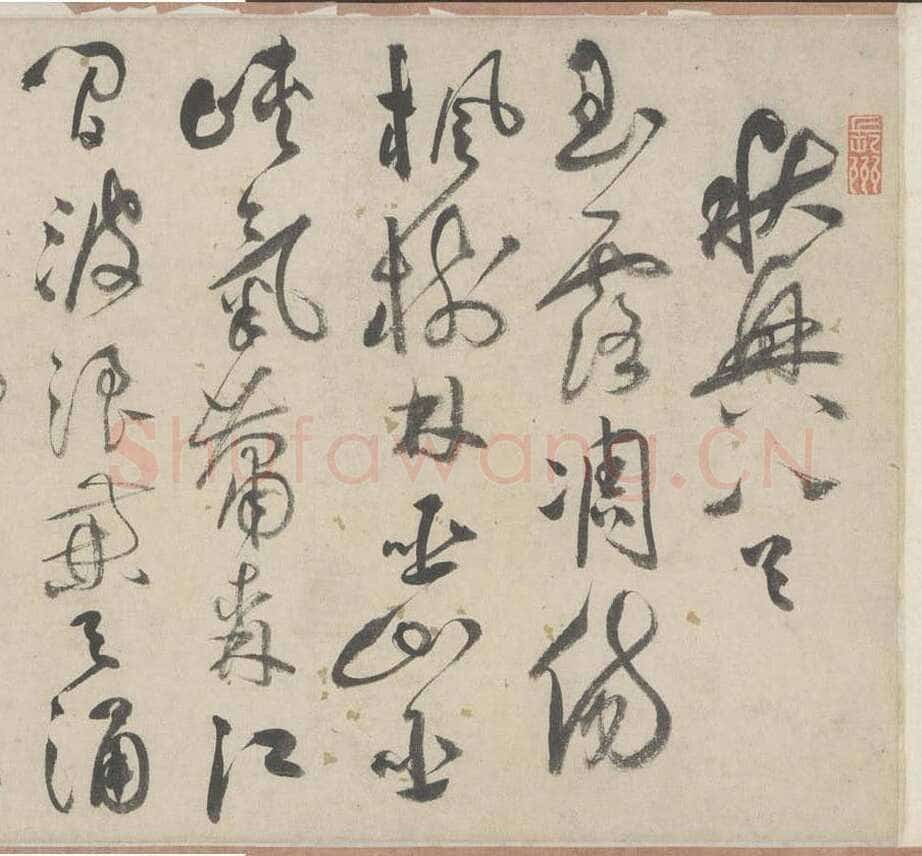 長洲
秋興八首
玉露凋傷
楓樹林巫山巫
峽氣蕭森江
間波浪兼天涌
Shufawang.CN